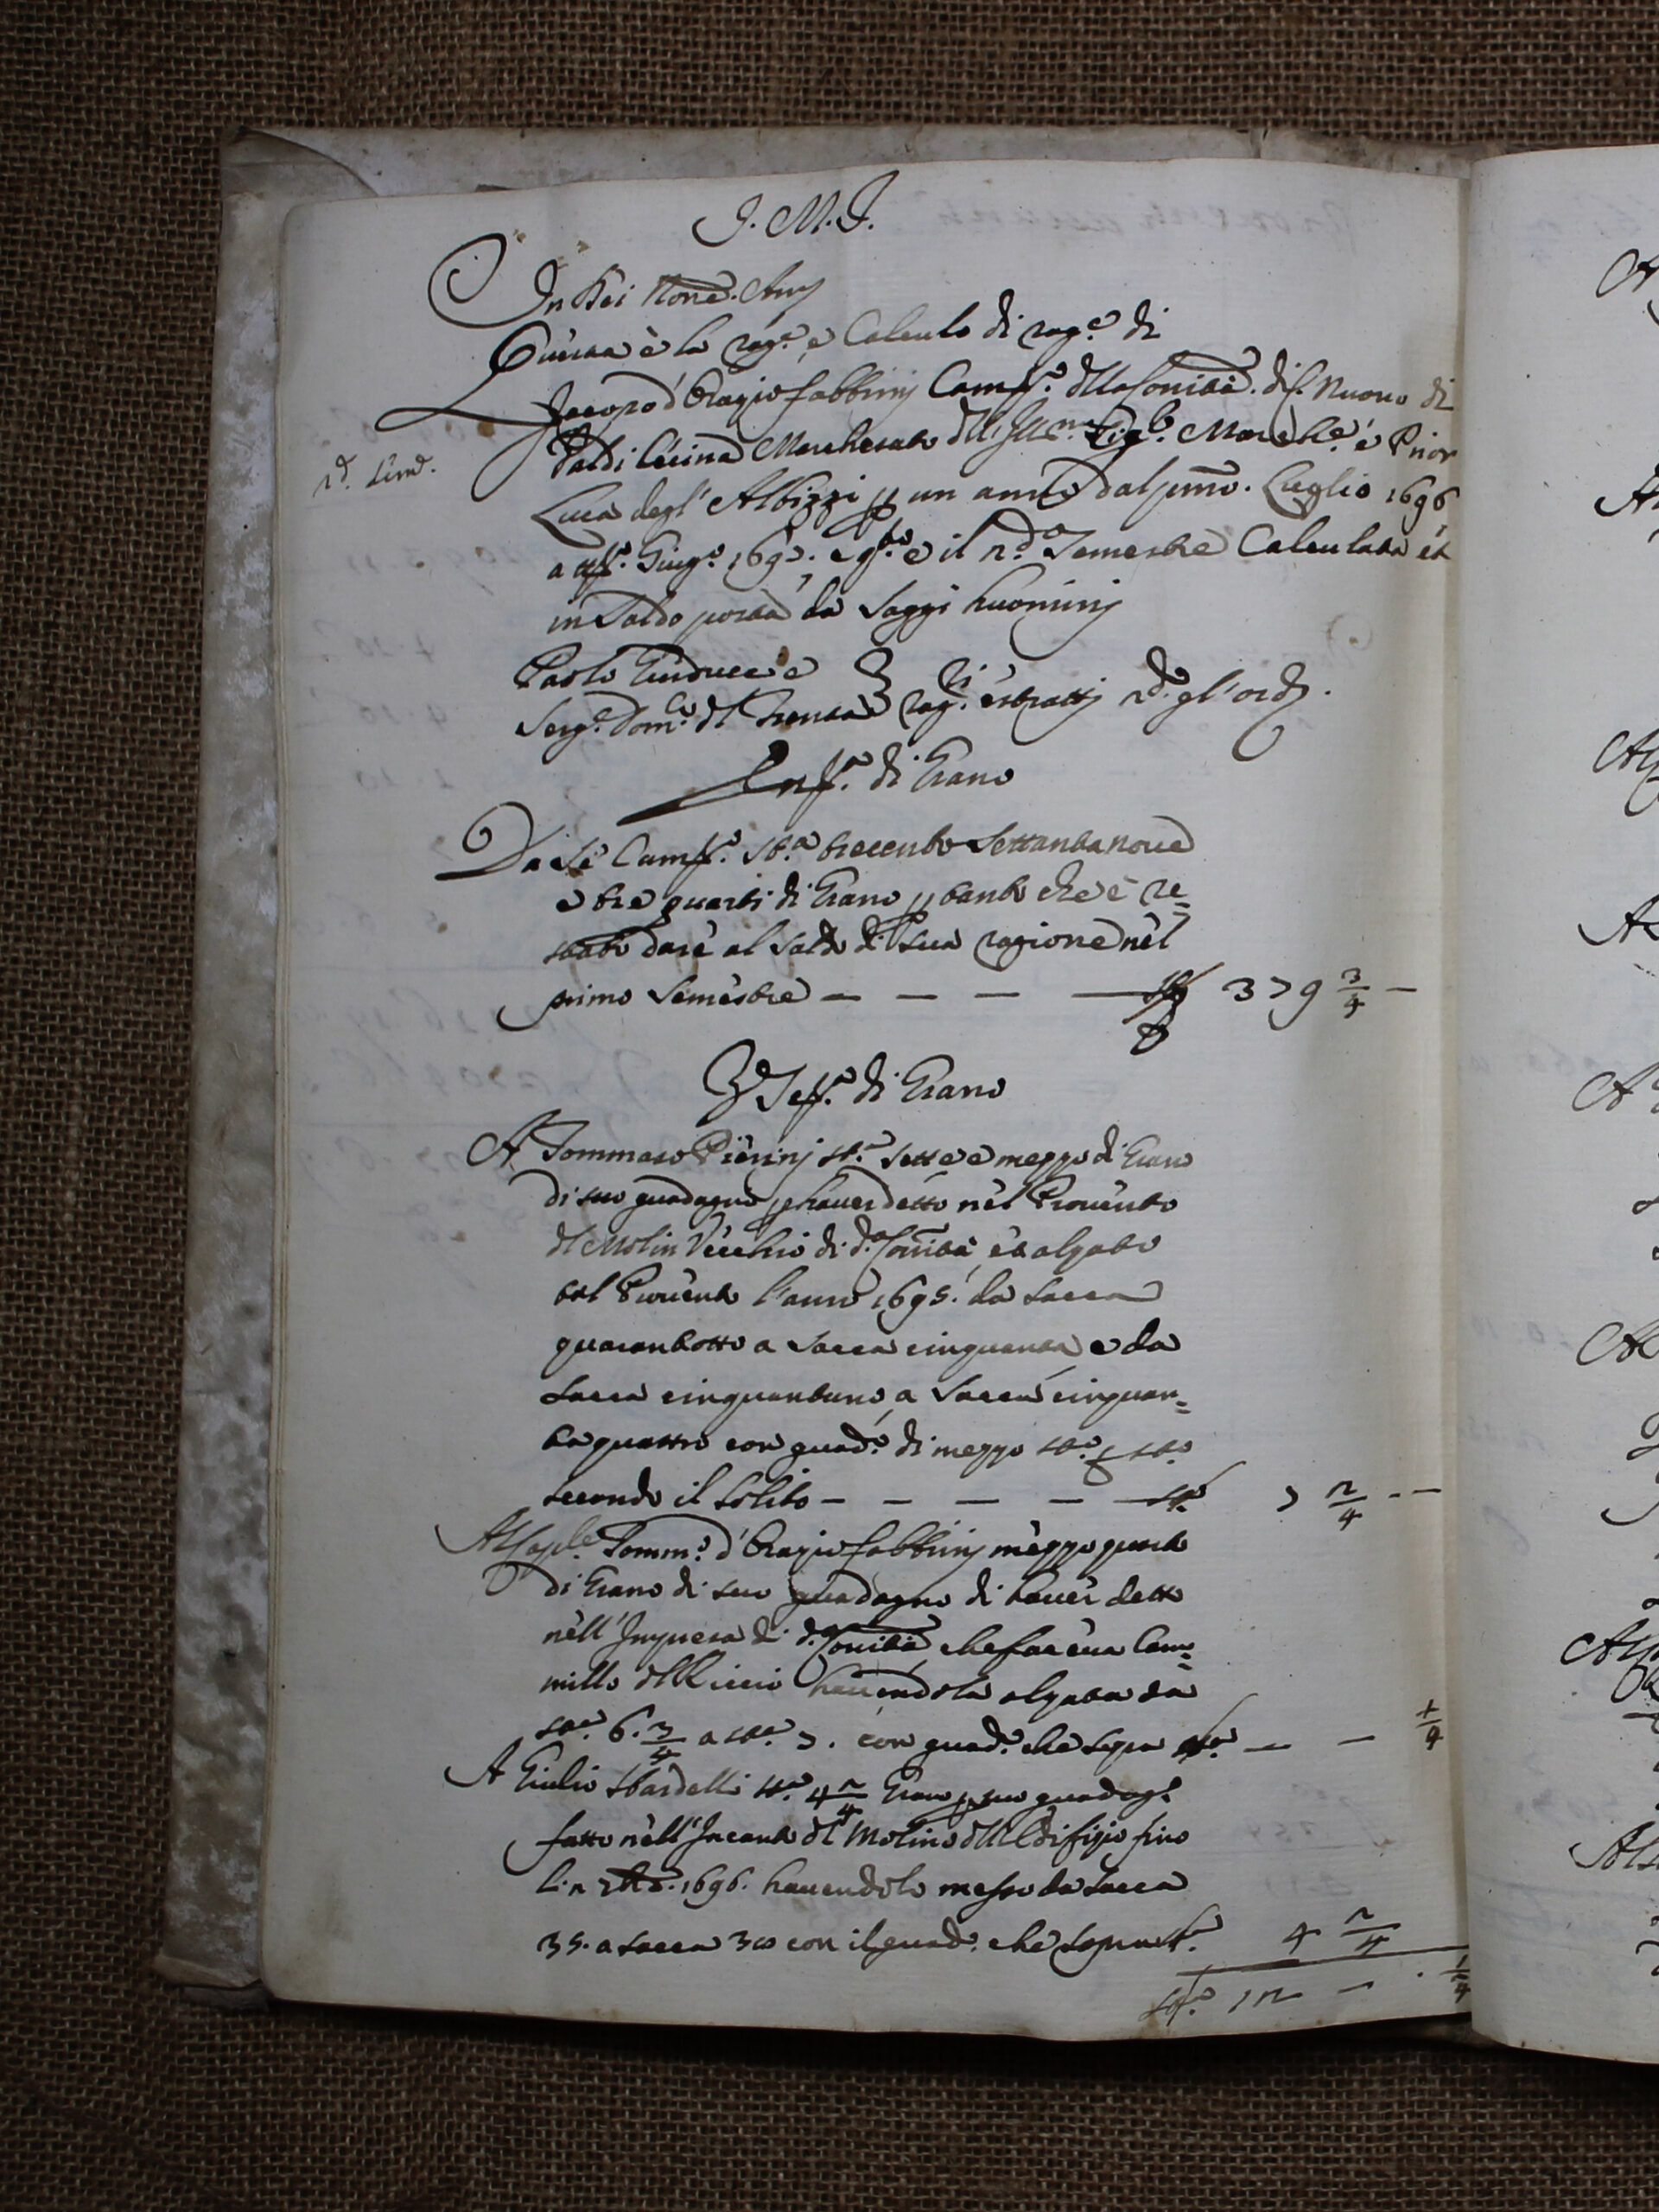 J. M. J.
In Dei Nom̃e. Am̃
Questa è la rag.e e Calculo di rag.e di
Jacopo d'Oragio fabbrinj Camp.o dlla Com̃ità. di C. Nuovo di
Val di Cecina Marchesato dll' Ill.mo Sig.e Marche.e e Prior
2.d. Sem.e
Luca degl' Albizzi p un anno dal pm̃o. Luglio 1696
a Giug.o 1697. e q.to è il 2.do Semestre Calculata et
in Saldo posta da Saggi huominj
Paolo Guiducci e
Serg.e Dom.co dl Trensa rag.ri estrattj 2.do gl'ord.j
Ent.a di Grano
Da Sè Camp.o st.a trecento Settantanove
e tre quarti di Grano p tanto che è re=
stato dare al Saldo di Sua ragione nel
primo Semestre — — — — st.a 379 3/4 —
Es.a di Grano
A Tommaso Pierinj st.a Sette e mezzo di Grano
di suo guadagno p haver detto nel Provento
dl Molin Vecchio di d.a Com̃ità, et alzato
tal Provento l'anno 1695. da Sacca
quarantotto a Sacca cinquanta e da
Sacca cinquantuno a Sacca cinquan=
taquattro con guad.o di mezzo st.o p st.o
secondo il Solito — — — — — st.a 7 2/4 - —
Al Cap.le Tomm.o d'Oragio fabbrinj mezzo quarto
di Grano di suo guadagno di haver detto
nell' Impresa di d.a Com̃ità, che faceva Cam=
millo dl Riccio havendola alzata da
sta.a 6. 3/4 a sta.a 7. con guad.o che sopra st.a — — 1/4
A Giulio Sbardelli st.a 4 2/4 Grano p suo guadag.o
fatto nell' Incanto dl Molino dll' Edifizio fino
li 2 1696. havendolo messo da Sacca
35. a Sacca 38 con il guad.o che sopra st.a 4 2/4
st.a 12 — . 1/4